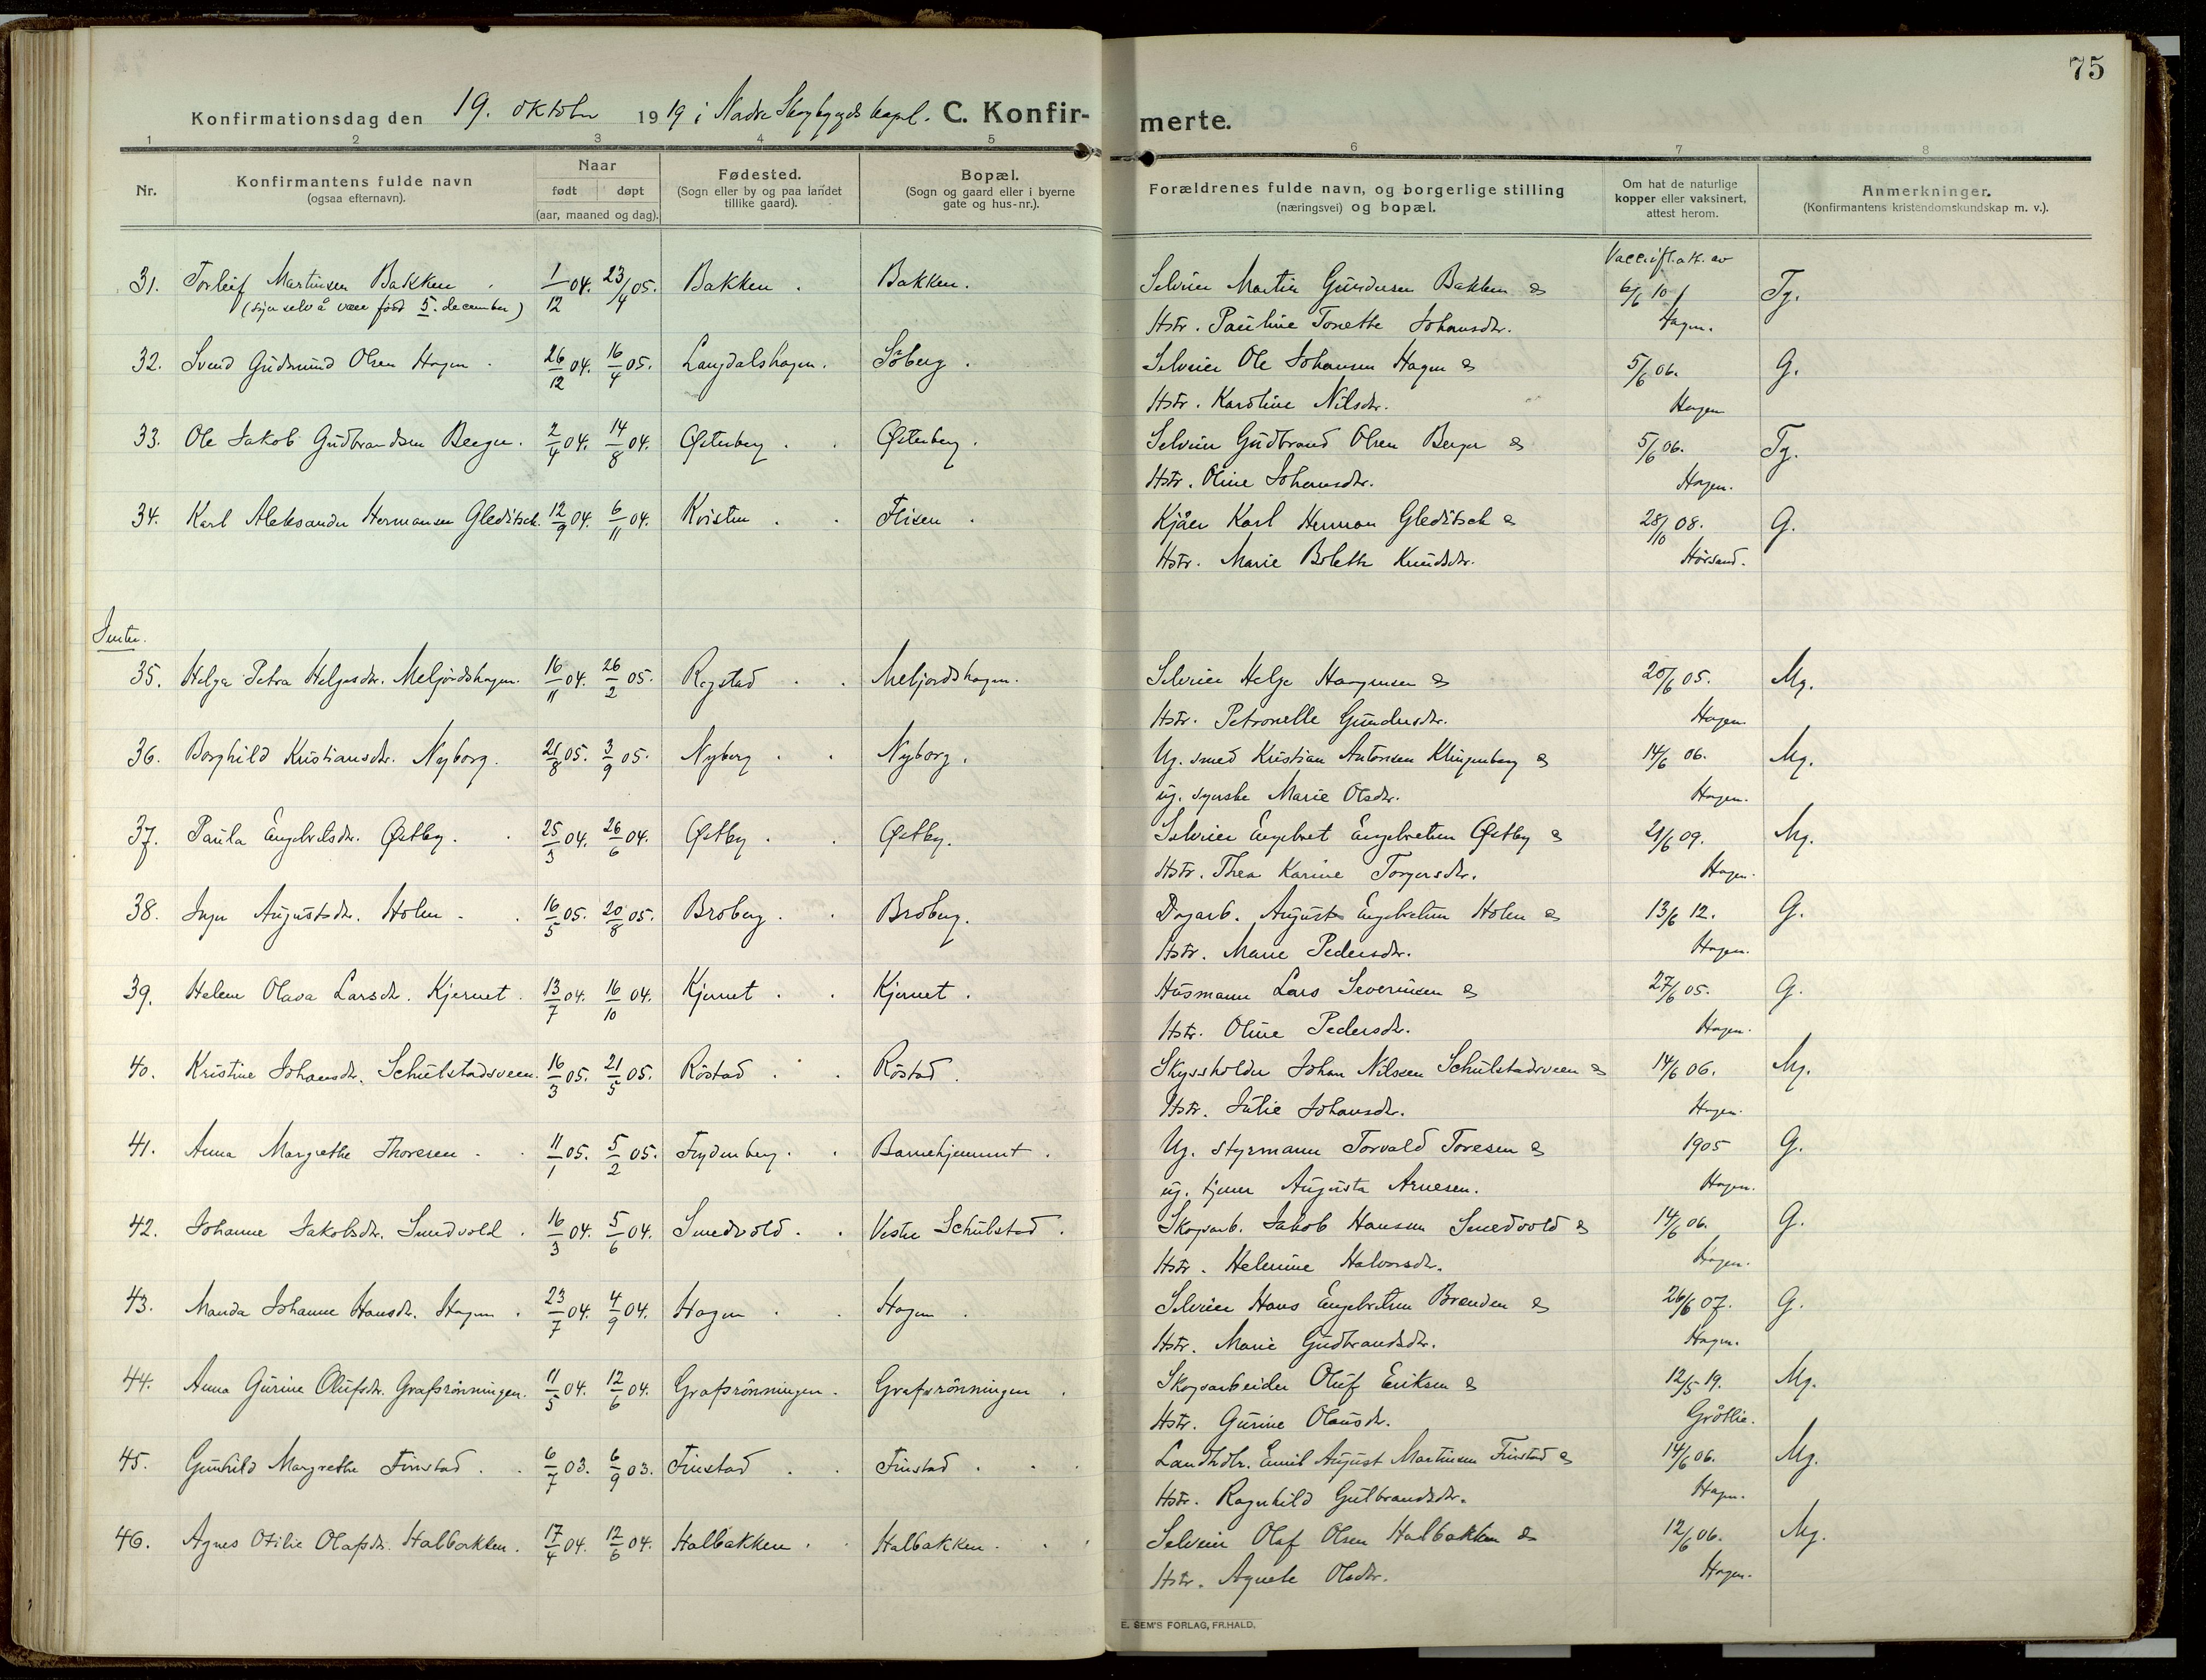 75
Konfirmationsdag den 19. oktober 1919 i Nadre Skogbygds kapel. C. Konfir-merte.
1 2 3 4 5 6 7 8
Nr.
Konfirmantens fulde navn
(ogsaa efternavn).
Naar
født døpt
(aar, maaned og dag).
Fødested.
(Sogn eller by og paa landet
tillike gaard).
Bopæl.
(Sogn og gaard eller i byerne
gate og hus-nr.).
Forældrenes fulde navn, og borgerlige stilling
(næringsvei) og bopæl.
Om hat de naturlige
kopper eller vaksinert,
attest herom.
Anmerkninger.
(Konfirmantens kristendomskundskap m. v.).
31. Torleif Martinsen Bakken. 1/12 04. 23/4 05. Bakken. Bakken. Selveier Martin Gundersen Bakken & Vacc.ift.att. av 6/6 10 Tg.
(sijer selv å være född 5. december) Hstr. Pauline Tonette Johansdtr. Hagen.
32. Svend Gudmund Olsen Hagen. 26/12 04. 16/4 05. Langdalshagen. Söberg. Selveier Ole Johansen Hagen & 5/6 06. G.
Hstr. Karoline Nilsdtr. Hagen
33. Ole Jakob Gudbrandsen Berger. 2/4 04. 14/8 04. Østerberg. Østerberg. Selveier Gudbrand Olsen Berger & 5/6 06. Tg.
Hstr. Oline Johansdtr. Hagen.
34. Karl Aleksander Hermansen Gleditsch. 12/9 04. 6/11 04. Kvisten. Flisen. Kjåer Karl Herman Gleditsch & 28/10 08. G.
Hstr. Marie Bolette Knudsdtr. Hörsand.
Jenter.
35. Helga Petra Helgesdtr. Meljordshagen. 16/11 04. 26/2 05. Rogstad. Meljordshagen. Selveier Helge Haagensen & 20/6 05. Mg.
Hstr. Petronelle Gundersdtr. Hagen
36. Borghild Kristiansdtr. Nyborg. 21/8 05. 3/9 05. Nyborg. Nyborg. Ug. smed Kristian Antonsen Klingenberg & 14/6 06. Mg.
ug. syerske Marie Olsdtr. Hagen.
37. Paula Engebretsdtr. Østby. 25/3 04. 26/6 04. Østby. Østby. Selveier Engebret Engebretsen Østby & 21/6 09. Mg.
Hstr. Thea Karine Torgersdtr. Hagen.
38. Inger Augustsdtr. Holen. 16/5 05. 20/8 05. Broberg. Broberg. Dagarb. August Engebretsen Holen & 13/6 12. G.
Hstr. Marie Pedersdtr. Hagen.
39. Helene Olava Larsdtr. Kjernet. 13/7 04. 16/10 04. Kjernet. Kjernet. Husmann Lars Severinsen & 27/6 05. G.
Hstr. Oline Pedersdtr. Hagen.
40. Kristine Johansdtr. Schulstadsveen. 16/3 05. 21/5 05. Röstad. Röstad. Skyssholder Johan Nilssen Schulstadsveen & 14/6 06. Mg.
Hstr. Julie Johansdtr. Hagen.
41. Anna Margrethe Thoresen. 11/1 05. 5/2 05. Frydenberg. Barnehjemmet. Ug. styrmann Torvald Toresen & 1905 G.
ug. tjener Augusta Arnesen. Hagen.
42. Johanne Jakobsdtr. Smedvold. 16/3 04. 5/6 04. Smedvold. Vestre Schulstad. Skogsarb. Jakob Hansen Smedvold & 14/6 06. G.
Hstr. Helmine Halvorsdtr. Hagen.
43. Manda Johanne Hansdtr. Hagen. 23/7 04. 4/9 04. Hagen. Hagen. Selveier Hans Engebretsen Brenden & 26/6 07. G.
Hstr. Marie Gudbrandsdtr. Hagen.
44. Anna Gurine Olufsdtr. Grafsrönningen. 11/5 04. 12/6 04. Grafsrönningen. Grafsrönningen. Skogsarbeider Oluf Eriksen & 12/5 19. Mg.
Hstr. Gurine Olausdtr. Gröttie.
45. Gunhild Margrethe Finstad. 6/7 03. 6/9 03. Finstad. Finstad. Landhdlr. Emil August Martinsen Finstad & 14/6 06. Mg.
Hstr. Ragnhild Gulbrandsdtr. Hagen.
46. Agnes Otilie Olafsdtr. Halbakken. 17/4 04. 12/6 04. Halbakken. Halbakken. Selveier Olaf Olsen Halbakken & 12/6 06. Mg.
Hstr. Agnete Olsdtr. Hagen.
E. SEM'S FORLAG, FR.HALD.